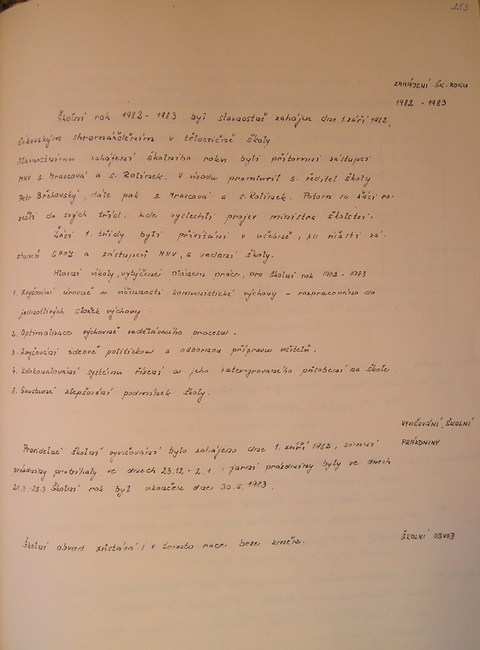 253
ZAHÁJENÍ ŠK. ROKU
1982 - 1983
Školní rok 1982 - 1983 byl slavnostně zahájen dne 1. září 1982,
shromážděním v tělocvičně školy.
Slavnostnímu zahájení školního roku byli přítomni zástupci
MNV s. Mravcová a s. Rolínek. V úvodu promluvil s. ředitel školy
Petr Břehovský, dále pak s. Mravcová a s. Rolínek. Potom se žáci ro-
zešli do svých tříd, kde vyslechli projev ministra školství.
Žáci 1. třídy byli přivítáni v učebně, za účasti zá-
stupců a zástupců MNV, a vedení školy.
Hlavní úkoly, vytyčené plánem práce, pro školní rok 1982 - 1983
1. Zvyšování úrovně a účinnosti komunistické výchovy - rozpracováno do
jednotlivých složek výchovy.
2. Optimalizace výchovně vzdělávacího procesu.
3. Zvyšování ideově politickou a odbornou přípravu učitelů.
4. Zdokonalování systému řízení a jeho integrovaného působení na škole
5. Soustavné zlepšování podmínek školy.
VYUČOVÁNÍ, ŠKOLNÍ
PRÁZDNINY
Pravidelné školní vyučování bylo zahájeno dne 1. září 1982, zimní
prázdniny probíhaly ve dnech 23.12 - 2.1. i jarní prázdniny byly ve dnech
Školní rok byl ukončen dne 30.6.1983.
ŠKOLNÍ OBVOD
Školní obvod zůstává i v tomto roce beze změn.